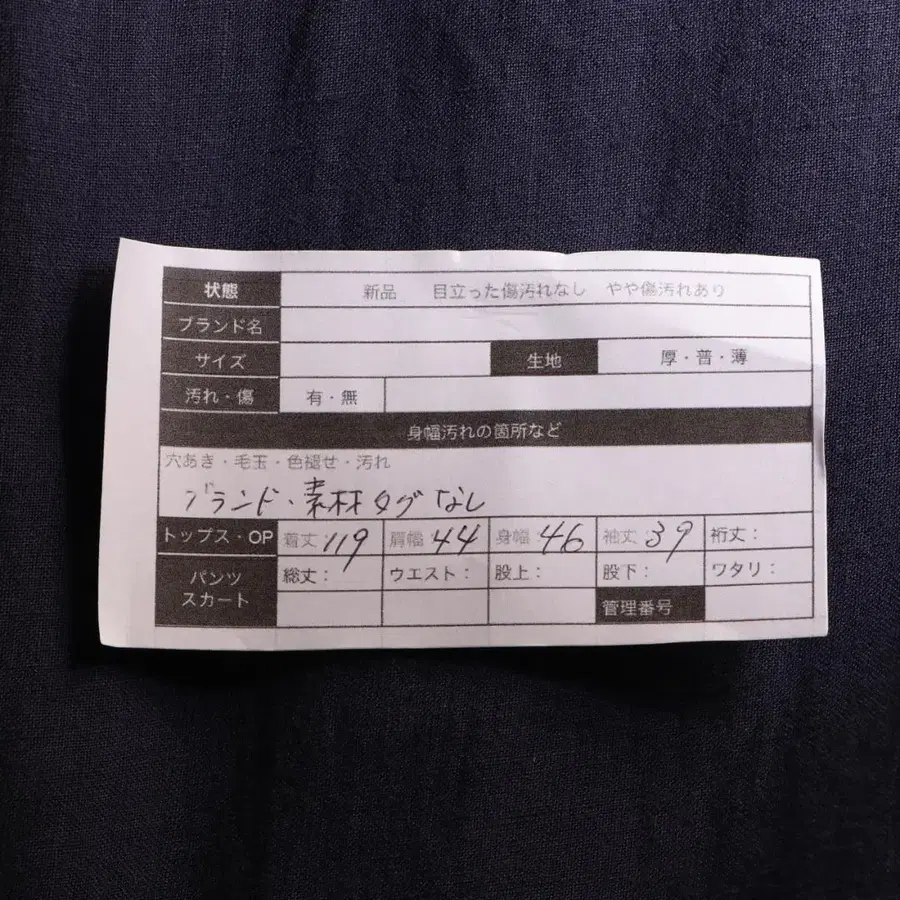 状態 新品 目立った傷汚れなし やや傷汚れあり
ブランド名
サイズ 生地 厚・普・薄
汚れ・傷 有・無
身幅汚れの箇所など
穴あき・毛玉・色褪せ・汚れ
ブランド、素材タグなし
トップス・OP 着丈:119 肩幅:44 身幅:46 袖丈:39 裄丈:
パンツ 総丈: ウエスト: 股上: 股下: ワタリ:
スカート 管理番号